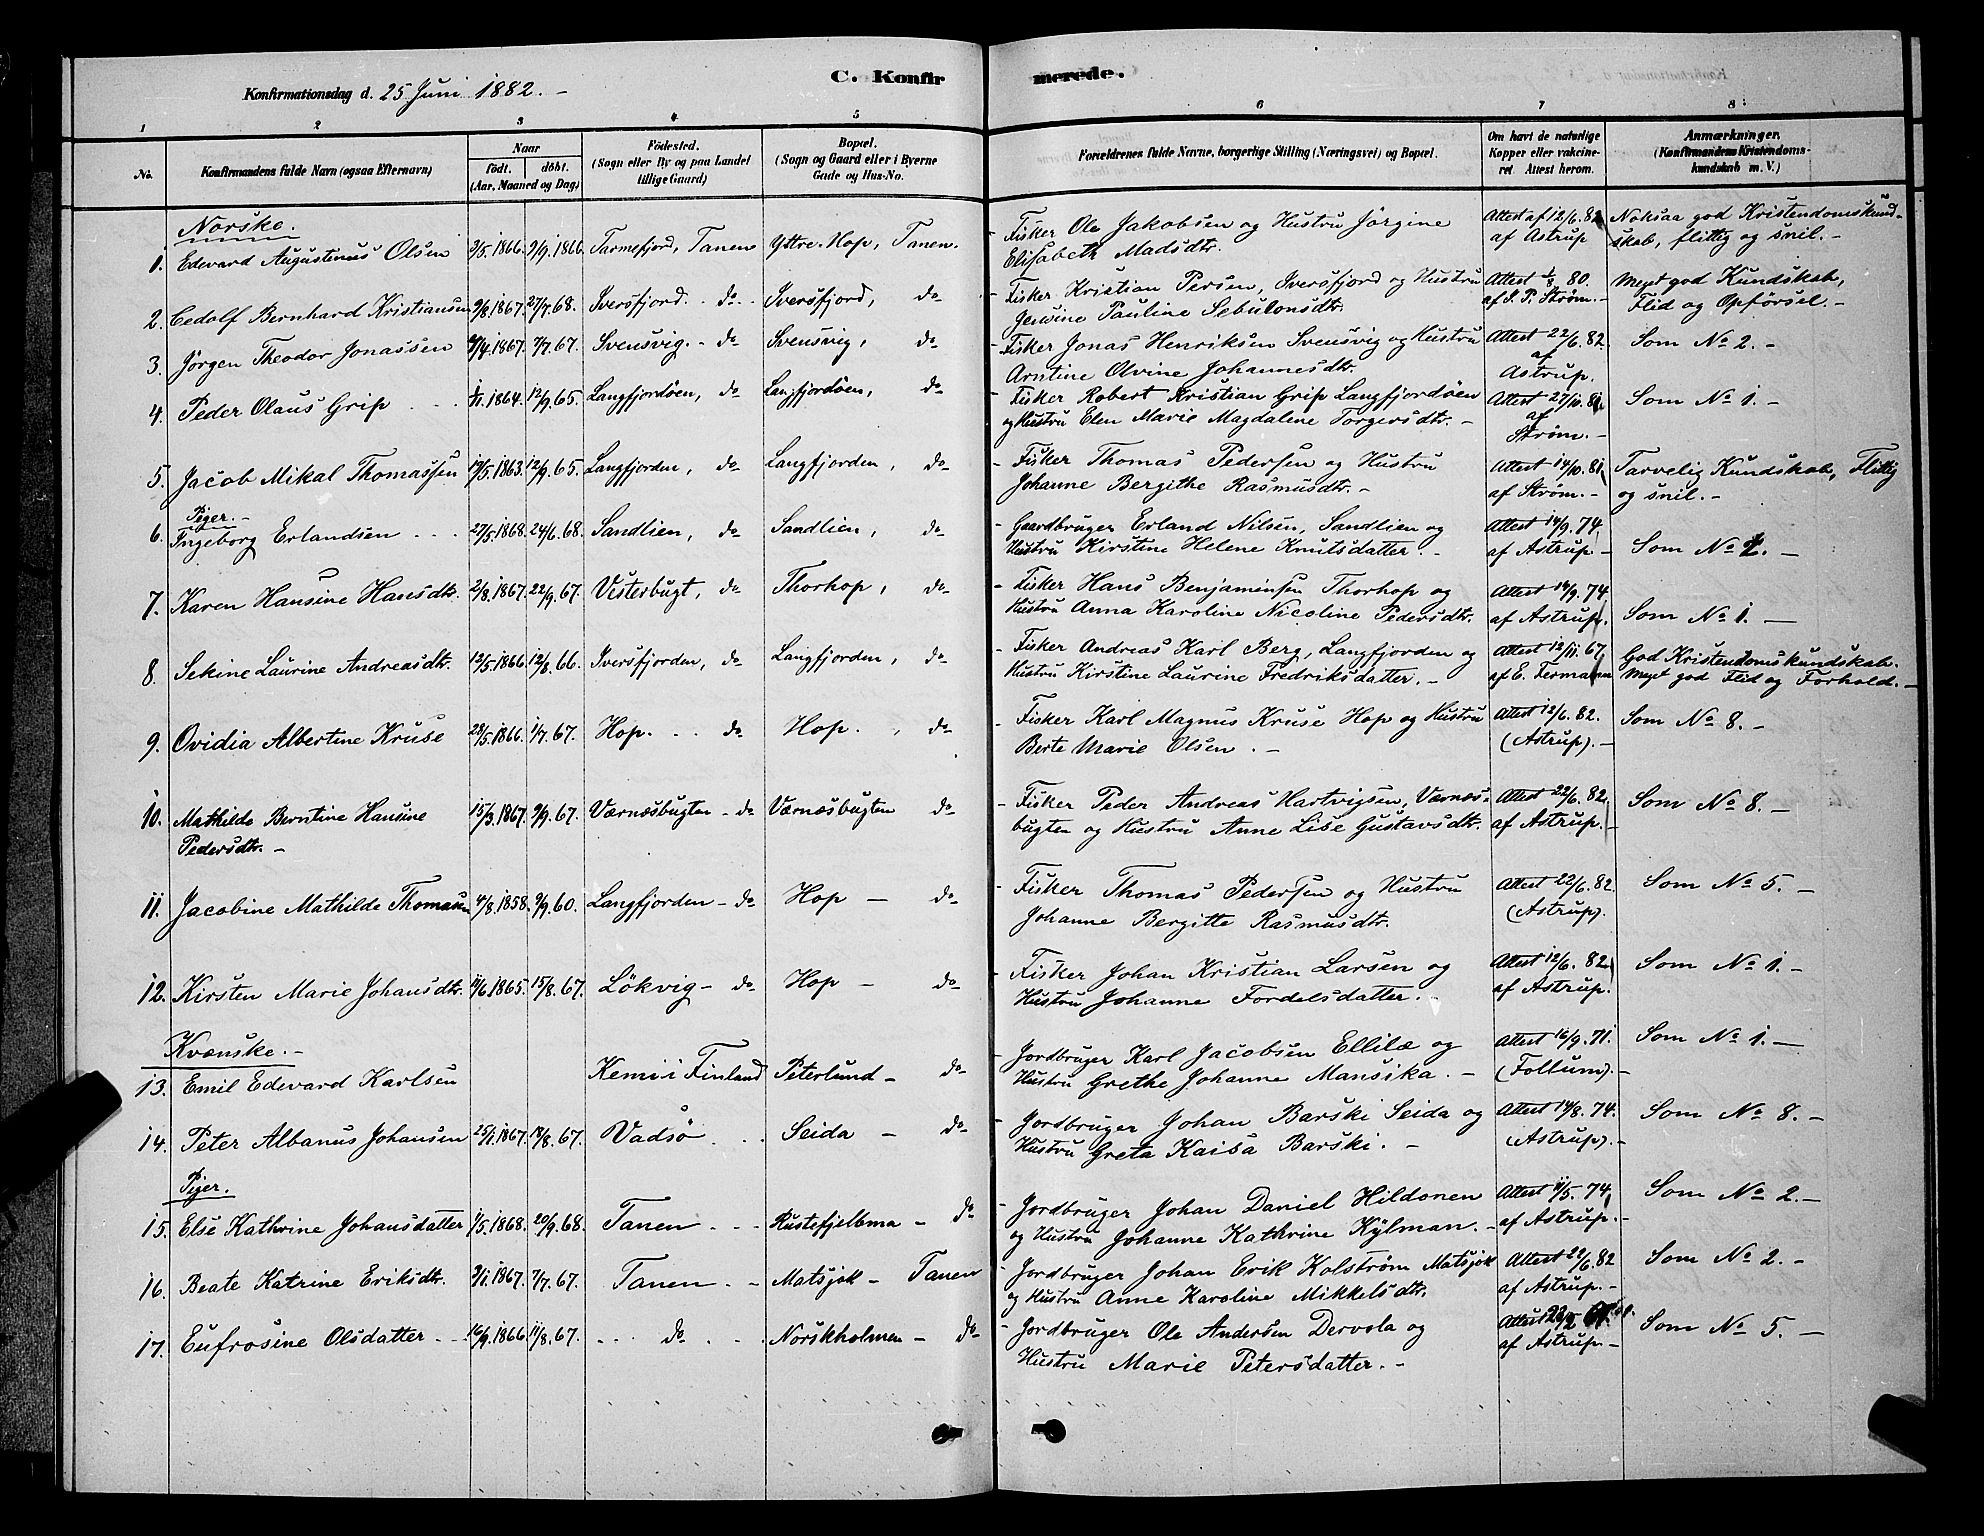 C. Konfirmerede.
Konfirmationsdag d. 25 Juni 1882. -
1 2 3 4 5 6 7 8
No. Konfirmandens fulde Navn (ogsaa Efternavn) Naar født. døbt. (Aar, Maaned og Dag) Fødested. (Sogn eller By og paa Landet tillige Gaard) Bopæl. (Sogn og Gaard eller i Byerne Gade og Hus-No. Forældrenes fulde Navne, borgerlige Stilling (Næringsvei) og Bopæl. Om havt de naturlige Kopper eller vakcineret Attest herom. Anmærkninger. (Konfirmandens Kristendomskundskab m. V.)
Norske.
1. Edevard Augustinus Olsen 2/5.1866. 9/9.1866. Tarmefjord, Tanen Yttre-Hop, Tanen. - Fisker Ole Jakobsen og Hustru Jörgine Attest af 12/6.82 Noksaa god Kristendomskund-
Elisabeth Madsdtr. af Astrup skab, flittig og snil. -
2. Cedolf Bernhard Kristiansen 9/8.1867. 27/7.68. Iversfjord. do Iversfjord, do - Fisker Kristian Persen, Iversfjord og Hustru Attest 1/8.80. Meget god Kundskab,
Jensine Pauline Sebulonsdtr. af J. P. Strøm. - Flid og Opförsel. -
3. Jörgen Theodor Jonassen 4/4.1867. 7/7.67. Svensvig. - do Svensvig, do - Fisker Jonas Henriksen Svensvig og Hustru Attest 22/6.82. Som No 2. -
Arntine Olvine Johannesdtr. af Astrup.
4. Peder Olaus Grip 1/11.1864. 12/9.65. Langfjordöen, do Langfjordöen, do - Fisker Robert Kristian Grip Langfjordöen Attest 27/10.81. Som No 1. -
og Hustru Elen Marie Magdalene Torgersdtr. - af Strøm. -
5. Jacob Mikal Thomassen 19/5.1863. 12/9.65. Langfjorden, do Langfjorden, do - Fisker Thomas Pedersen og Hustru Attest 14/10.81 Tarvelig Kundskab, Flittig
Johanne Bergithe Rasmusdtr. - af Strøm. - og snil. -
Piger. -
6. Ingeborg Erlandsen 27/5.1868. 24/6.68. Sandlien, do Sandlien, do - Gaardbruger Erland Nilsen, Sandlien og Attest 14/9.74
Hustru Kirstine Helene Knutsdatter. - af Astrup - Som No 2. -
7. Karen Hansine Hansdtr. 2/8.1867. 22/9.67. Visterbugt, do Thorhop, do - Fisker Hans Benjaminsen Thorhop og Attest 14/9.74.
Hustru Anna Karoline Nicoline Pedersdtr. af Astrup. Som No 1. -
8. Sekine Laurine Andreasdtr. 12/5.1866. 12/8.66. Iversfjorden, do Langfjorden, do - Fisker Andreas Karl Berg, Langfjorden og Attest 12/11.67. God Kristendomskundskab.
Hustru Kirstine Laurine Fredriksdatter. - af E. Fermann Meget god Flid og Forhold. -
9. Ovidia Albertine Kruse 28/5.1866. 1/7.67. Hop. do Hop. do - Fisker Karl Magnus Kruse Hop og Hustru Attest 12/6.82. Som No 8. -
Berte Marie Olsen. - (Astrup). -
10. Mathilde Berntine Hansine 15/3.1867. 9/9.67. Værnæsbugten - do Værnæsbugten do - Fisker Peder Andreas Hartvigsen, Værnæs- Attest 22/6.82. Som No 8. -
Pedersdtr. - bugten og Hustru Anne Lise Gustavsdtr. af Astrup. -
11. Jacobine Mathilde Thomasen 4/8.1858. 9/9.60. Langfjorden - do Hop - do - Fisker Thomas Pedersen og Hustru Attest 22/6.82. Som No 5. -
Johanne Bergitte Rasmusdtr. (Astrup).
12. Kirsten Marie Johansdtr. 11/6.1865. 15/8.67. Lökvig - do Hop - do - Fisker Johan Kristian Larsen og Attest 12/6.82 Som No 1. -
Hustru Johanne Fordelsdatter. af Astrup.
Kvænske. -
13. Emil Edevard Karlsen Kemi i Finland Peterlund - do - Jordbruger Karl Jacobsen Ellilæ og Attest 16/9.71. Som No 1. -
Hustru Grethe Johanne Mansika. - (Follum). -
14. Peter Albanus Johansen 25/1.1867. 18/8.67. Vadsö Seida - do - Jordbruger Johan Barski Seida og Attest 14/8.74. Som No 8. -
Hustru Greta Kaisa Barski. - (Astrup). -
Piger.
15. Else Kathrine Johansdatter 1/5.1868. 20/9.68. Tanen Rustefjelbma - do - Jordbruger Johan Daniel Hildonen Attest 11/5.74 Som No 2. -
og Hustru Johanne Kathrine Kylman. - af Astrup. -
16. Beate Katrine Eriksdtr. 2/1.1867. 7/7.67. Tanen Matsjok - Tanen - Jordbruger Johan Erik Kolström Matsjok Attest 22/6.82 Som No 2. -
og Hustru Anne Karoline Mikkelsdtr. af Astrup. -
17. Eufrosine Olsdatter 16/9.1866. 11/8.67. do Norskholmen - do - Jordbruger Ole Andersen Dervola og Attest Som No 5. -
Hustru Marie Petersdatter. - af Astrup. -